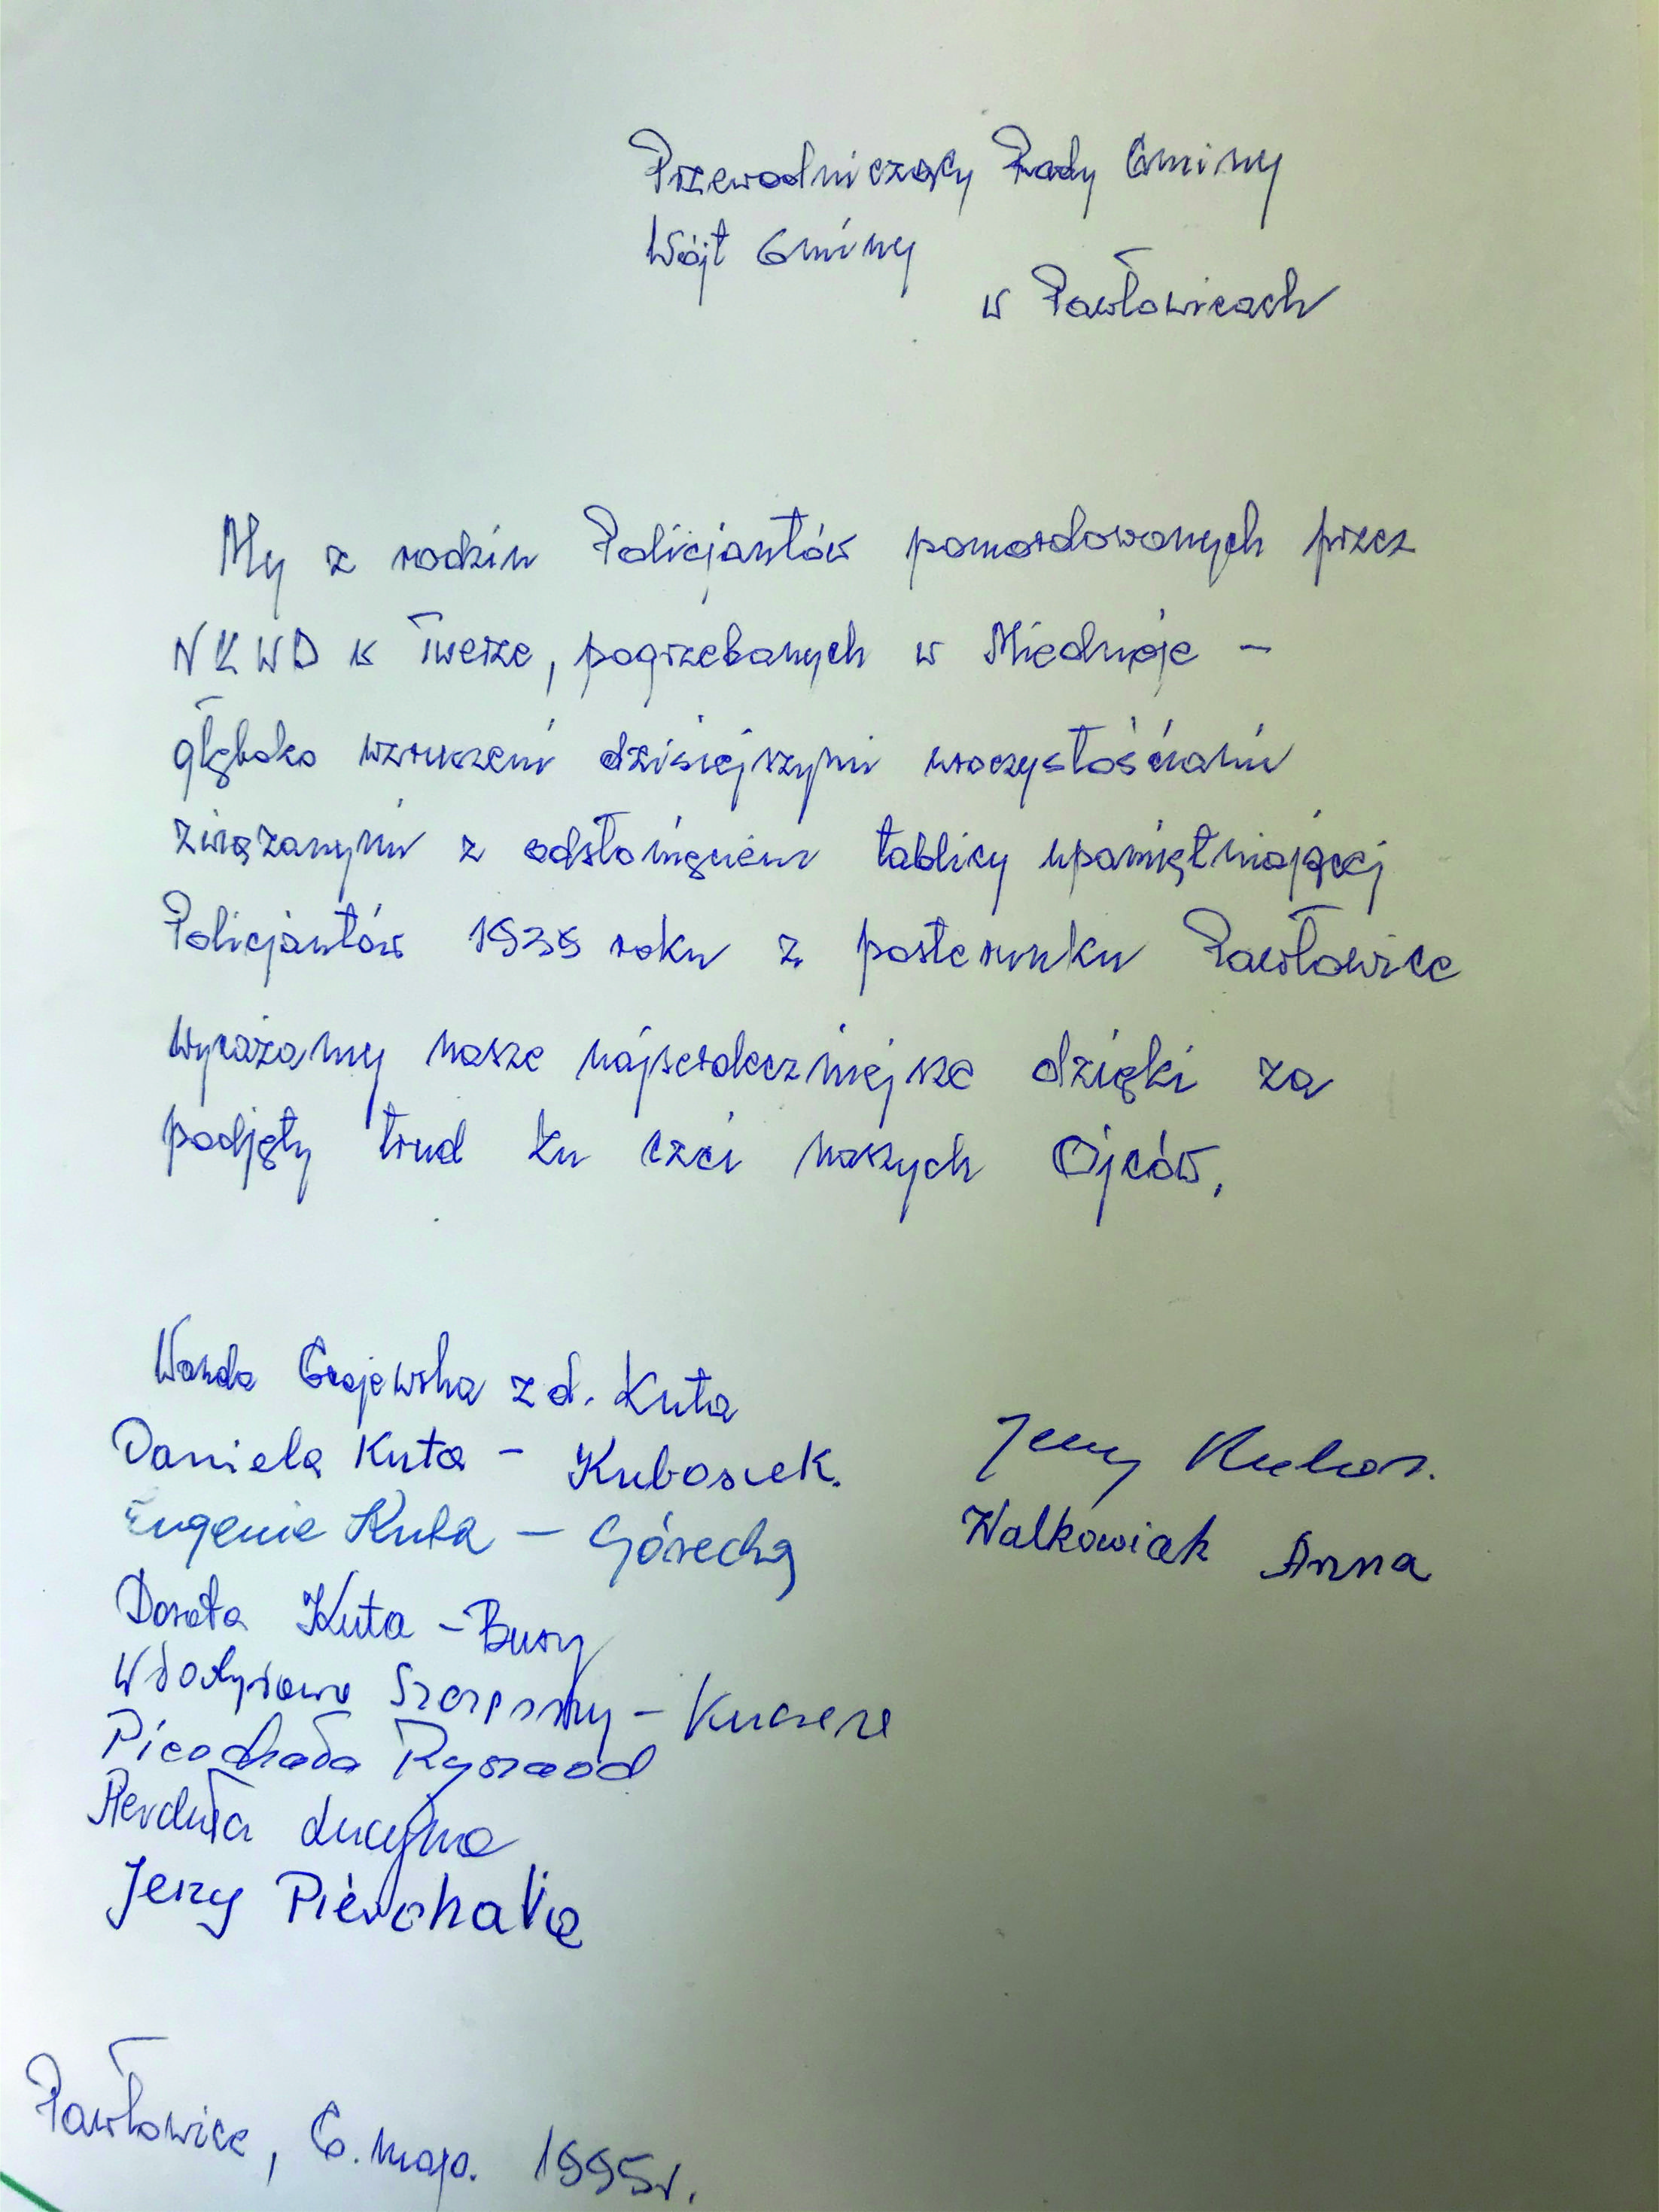 Przewodniczący Rady Gminy
Wójt Gminy
w Pawłowicach
My z rodzin Policjantów pomordowanych przez
NKWD w Twerze, pogrzebanych w Miednoje –
głęboko wzruszeni dzisiejszymi uroczystościami
związanymi z odsłonięciem tablicy upamiętniającej
Policjantów 1939 roku z posterunku Pawłowice
wyrażamy nasze najserdeczniejsze dzięki za
podjęty trud ku czci naszych Ojców.
Wanda Grajewska z d. Kuta
Daniela Kuta – Kubosiek.
Eugenia Kuta – Górecka
Dorota Kuta – Bury
Jerzy
Walkowiak Anna
Ryszard
Lucyna
Jerzy Pierchała
Pawłowice, 6. maja. 1995r.